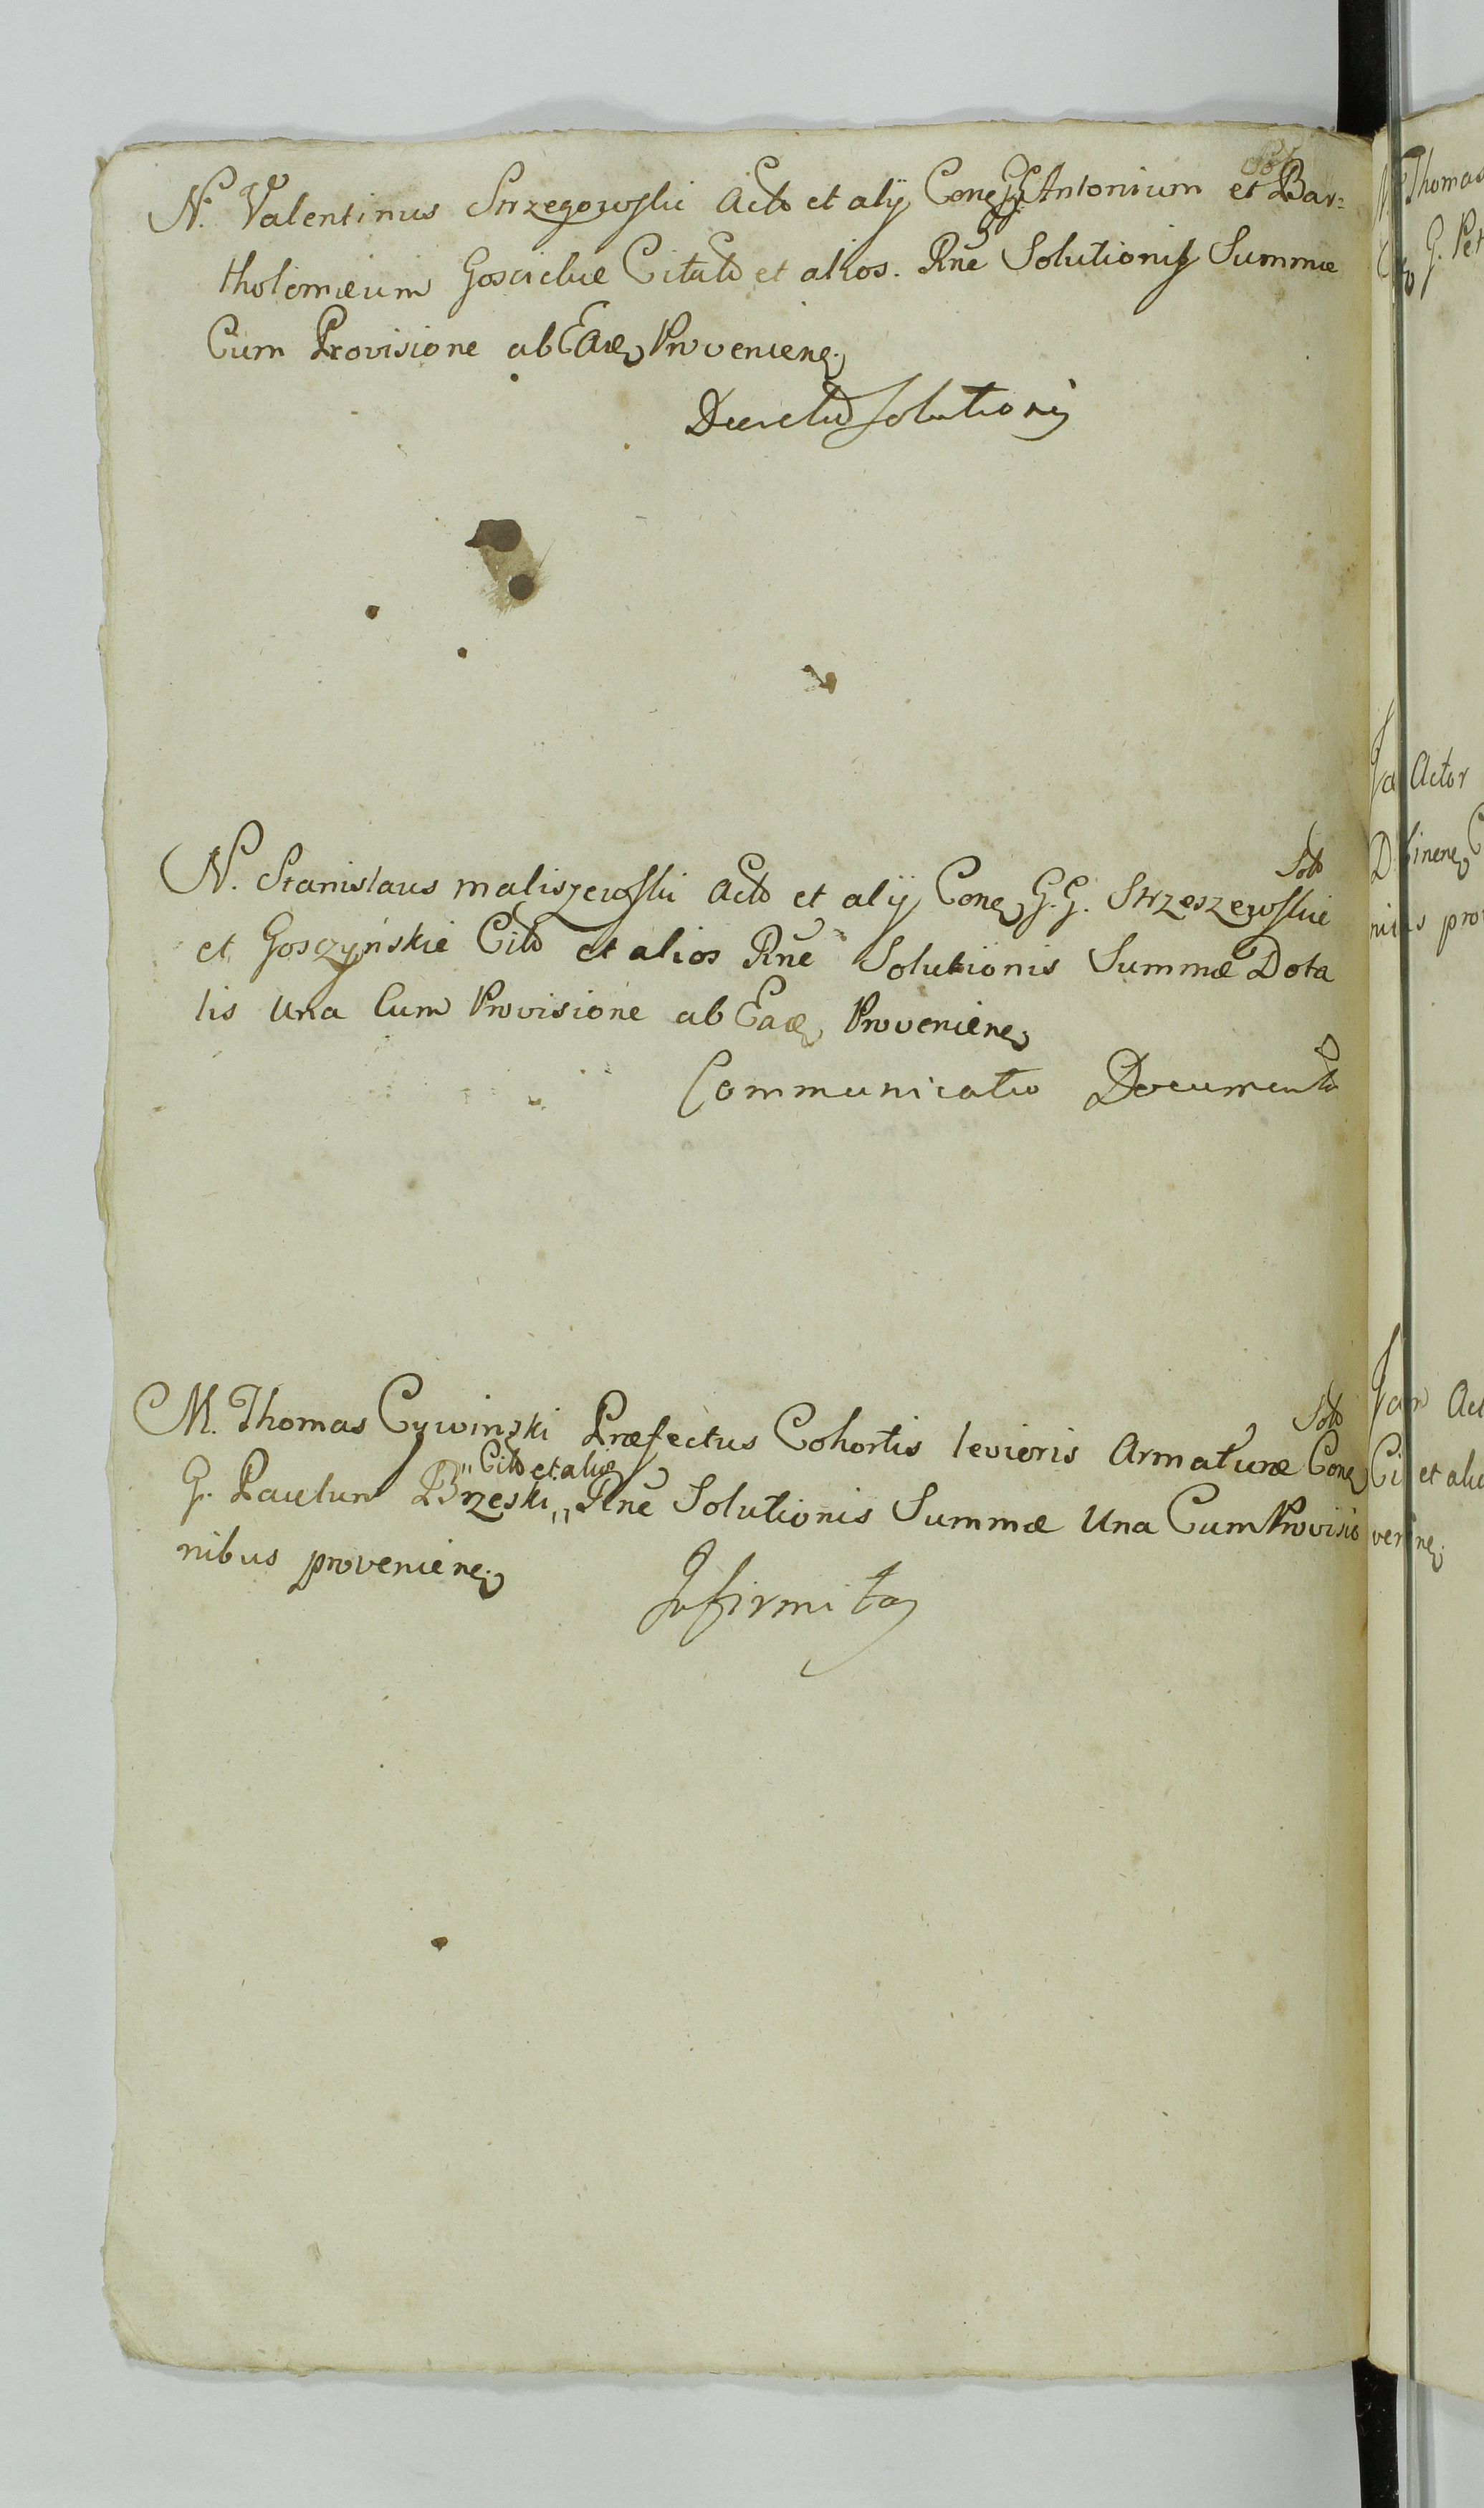 N. Valentinus Strzegowski Acto et alij Cone GG. Antonium et Bar=
tholomæum Goscickie Citato et alios. Rne Solutionis Summæ
Cum Provisione ab Eae Proveniene.
Decretu solutionis
Solo
N. Stanislaus maliszewski Acto et alij Cone G.G. Strzeszewskie
et Gosczyńskie Cito et alios Rne Solutionis Summæ Dota
lis Una Cum Provisione ab Eae Proveniene
Communicatio Documento
Solo
M. Thomas Cywinski Præfectus Cohortis levioris Armaturæ Cone
" Cito et alios
G. Paulum Brzeski " Rne Solutionis Summæ Una Cum Provisio
nibus proveniene.
Infirmitas
Thomas
G. Pet
Actor
pro
et alio